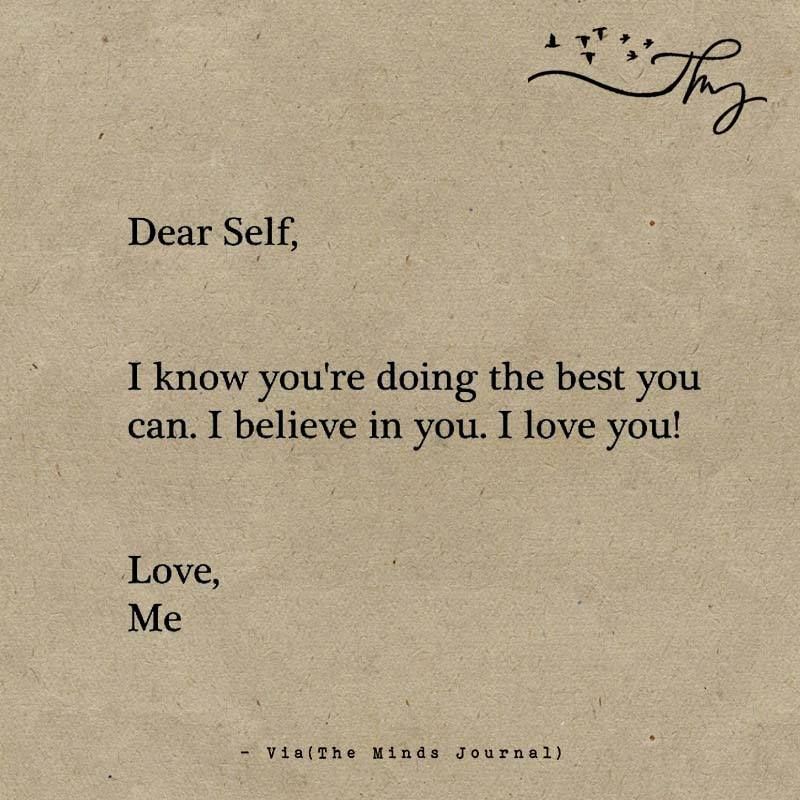 Thy
Dear Self,
I know you're doing the best you
can. I believe in you. I love you!
Love,
Me
- Via(The Minds Journal)